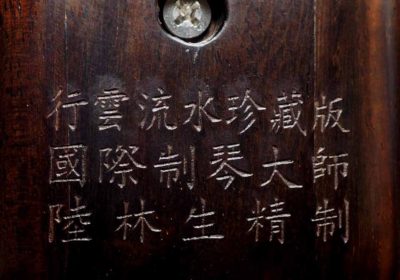 行雲流水珍藏版
國際制琴大師
陸林生精制